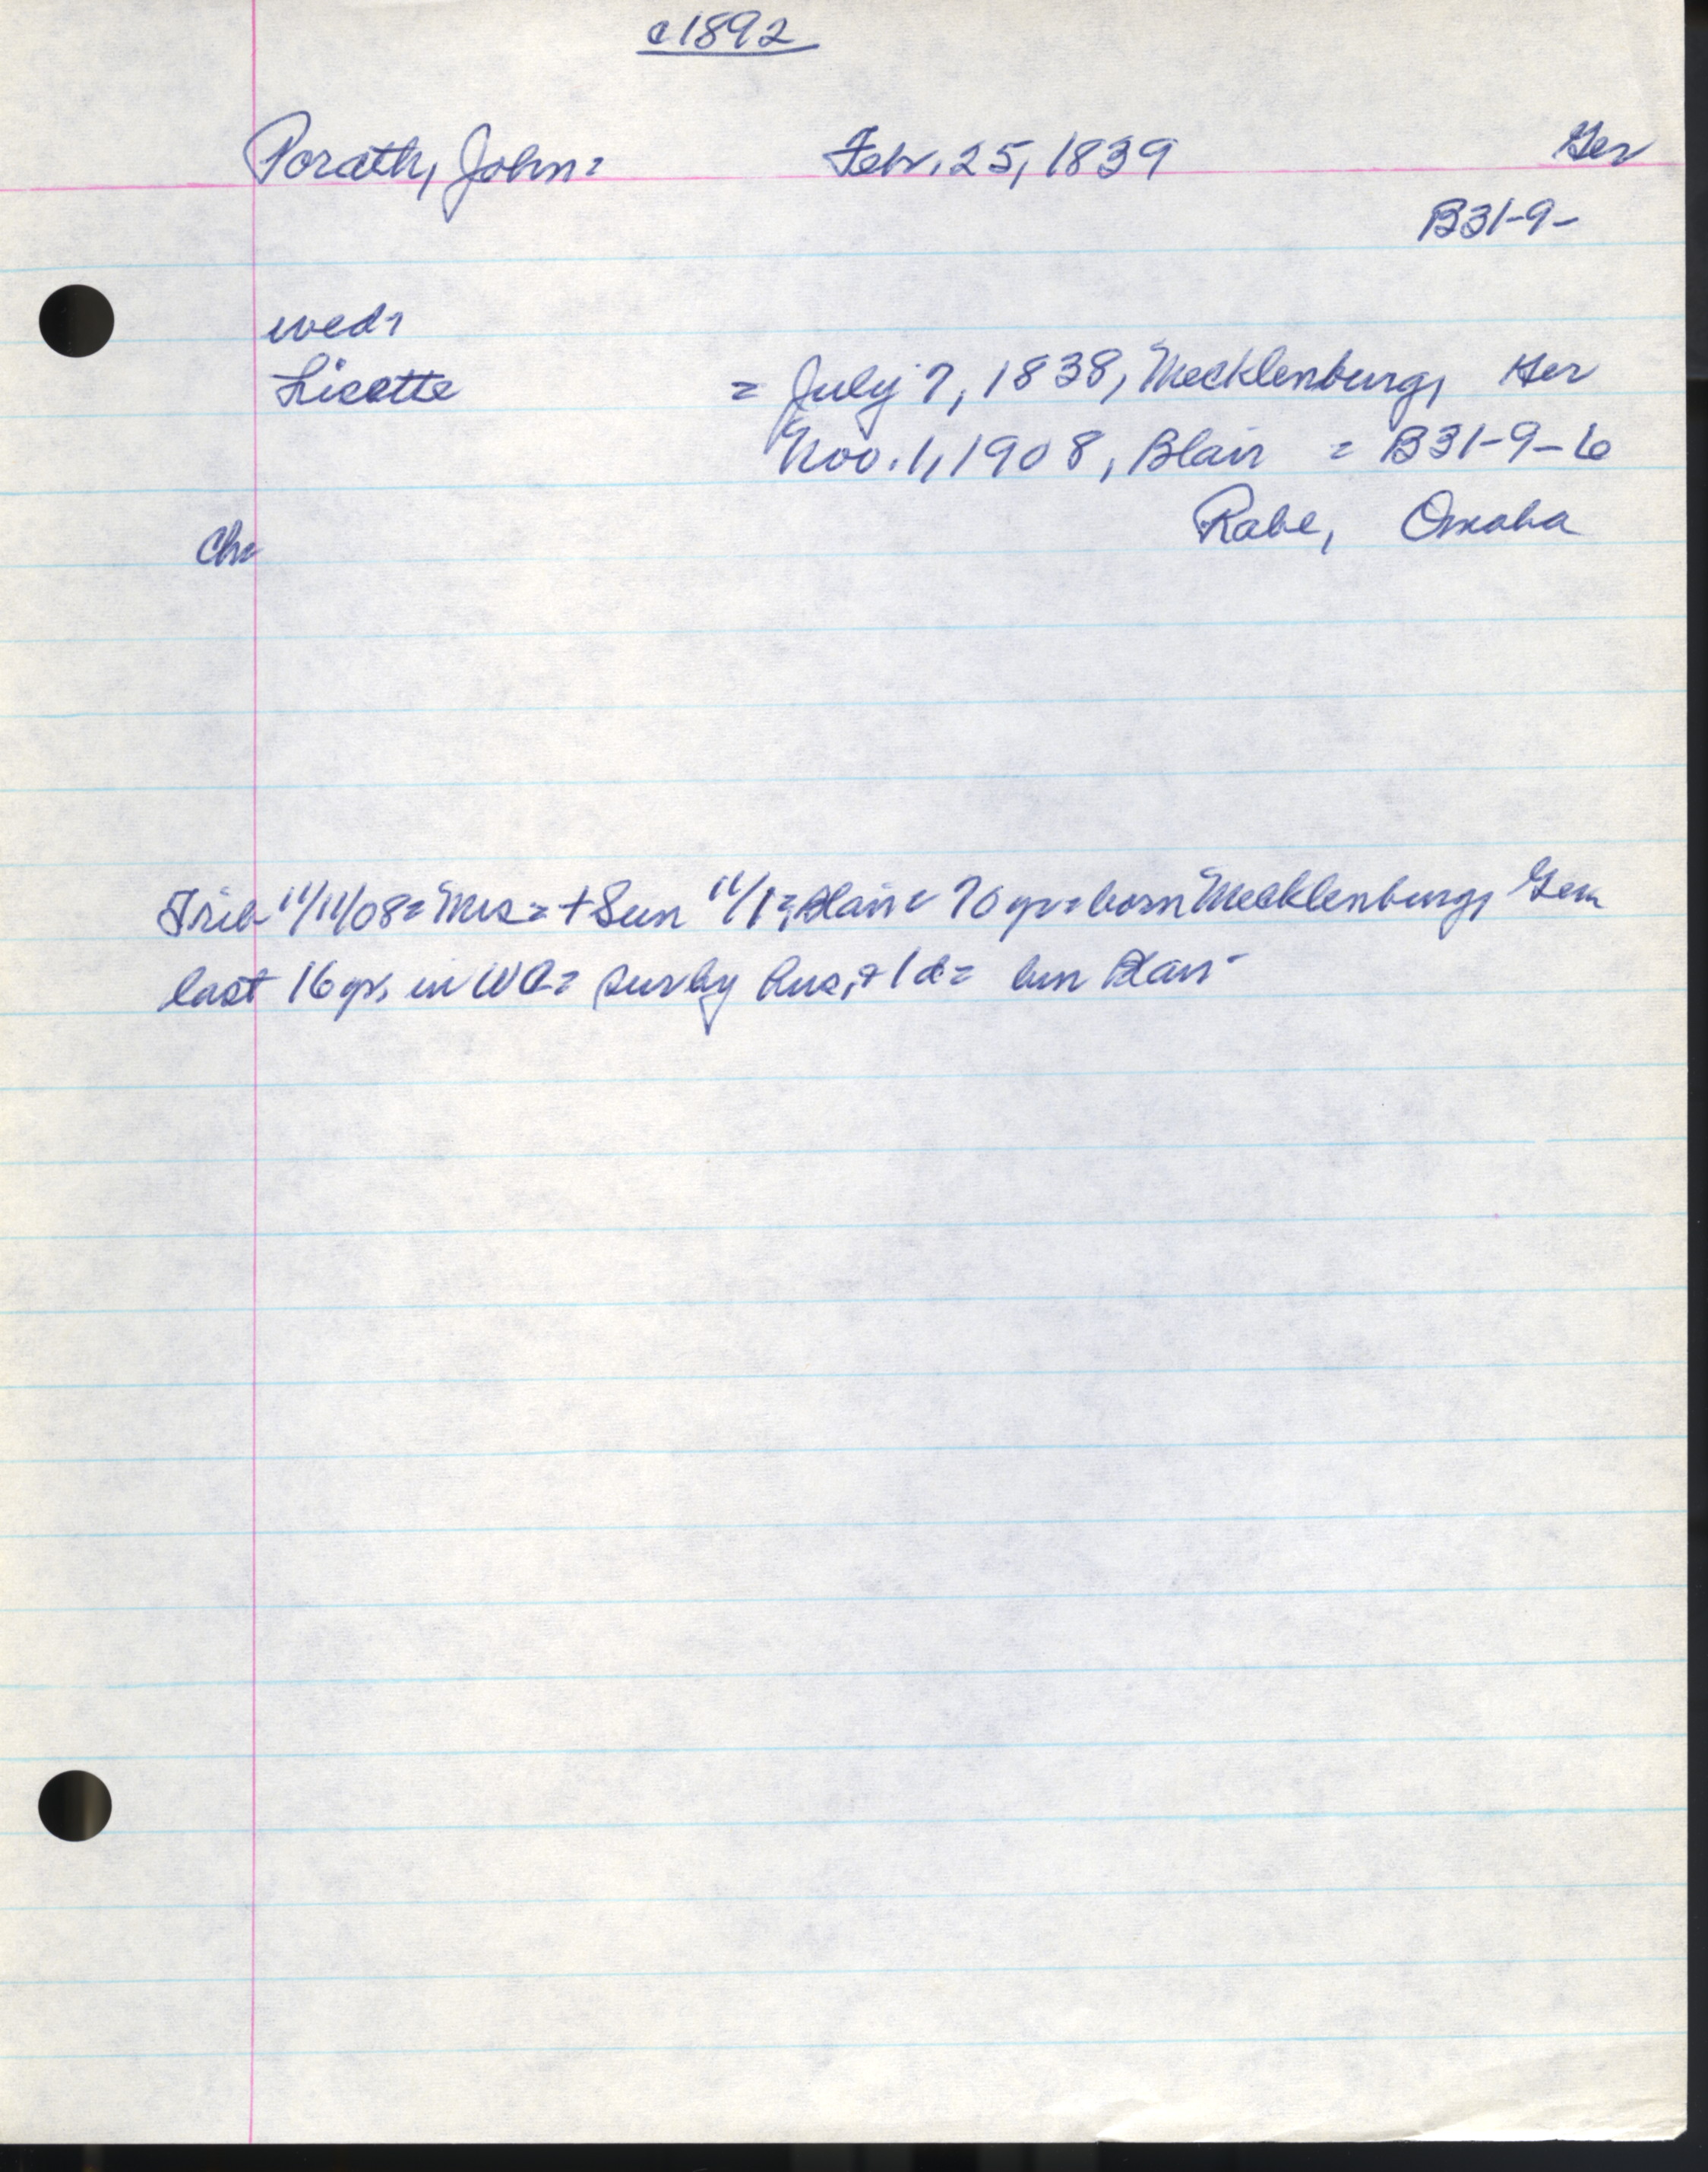 c1892
Porath, John = Febr. 25, 1839 Ger
B31-9-
wed=
Lisette = July 7, 1838, Mecklenburg, Ger
Nov. 1, 1908, Blair = B31-9-6
Rabe, Omaha
Ch=
Trib 11/11/08 = Mrs = + Sun 11/1 = Blair = 70 yr = born Mecklenburg, Ger
last 16 yrs in WC = sur by hus, + 1 d = bur Blair -